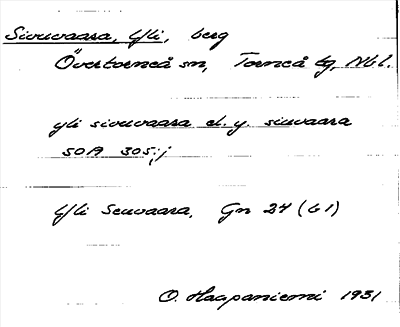 Sivuvaara, Yli, berg
Övertorneå sn, Torneå tg, Nbl.
yli sivuvaara el. y. siuvaara
SOA 305;
Yli Seuvaara, Gn 24 (61)
O. Haapaniemi 1931